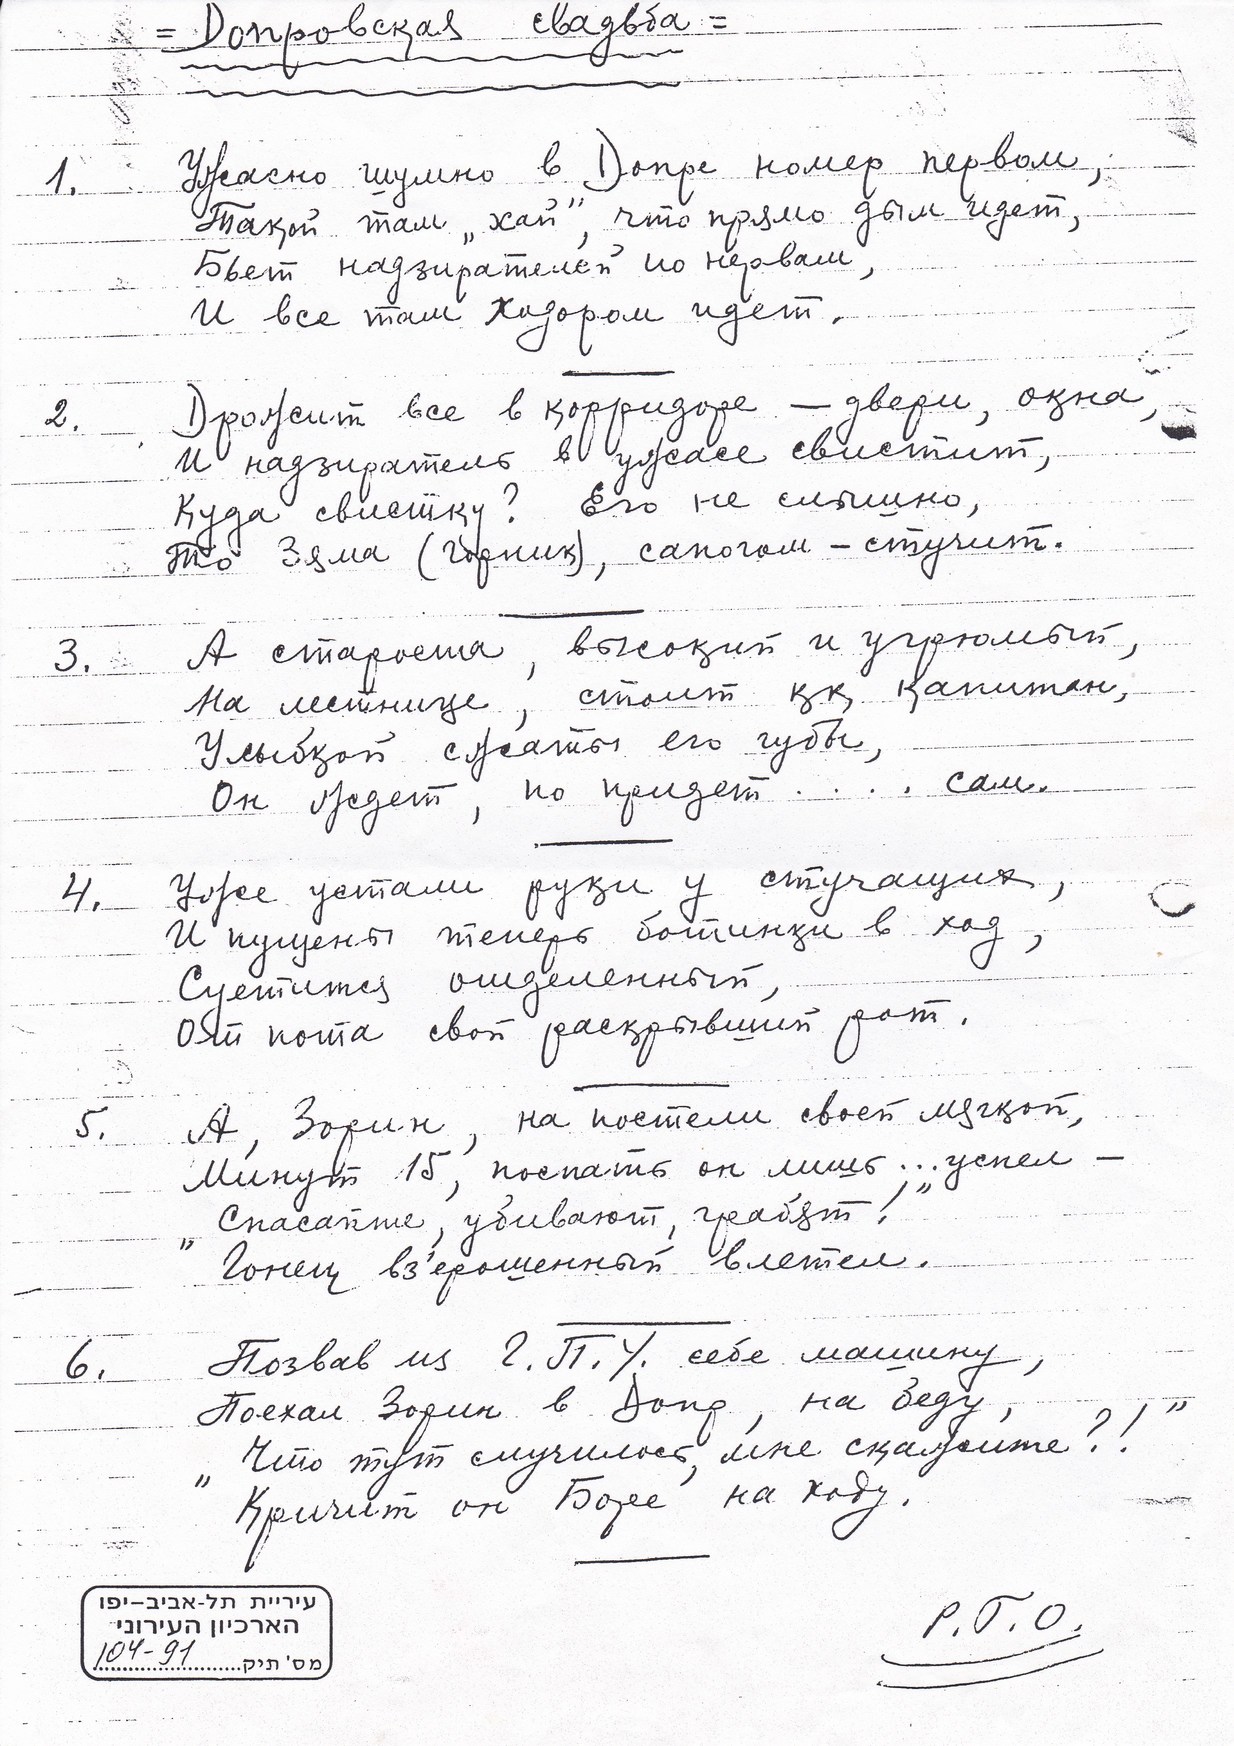 = Допровская свадьба =
1. Ужасно шумно в Допре номер первом,
Такой там „хай”, что прямо дым идет,
Бьет надзирателей по нервам,
И все там ходором идет.
2. Дрожит все в корридоре – двери, окна,
И надзиратель в ужасе свистит,
Куда свистку? Его не слышно,
То Зяма (Горник), сапогом – стучит.
3. А староста, высокий и угрюмый,
На лестнице, стоит кк капитан,
Улыбкой сжаты его губы,
Он ждет, по придет . . . . сам.
4. Уже устали руки у стучащих,
И пущены теперь ботинки в ход,
Суетится ошделенный,
От пота свой раскрывший рот.
5. А, Зорин, на постели своей мягкой,
Минут 15, поспать он лишь ... успел –
„Спасайте, убивают, грабят!”
Гонец вз'ерошенный влетел.
6. Позвав из Г.П.У. себе машину,
Поехал Зорин в Допр, на беду,
„Что тут случилось, мне скажите?!”
Кричит он Боре на ходу.
P.T.O.
עיריית תל-אביב-יפו
הארכיון העירוני
מס' תיק 104-91